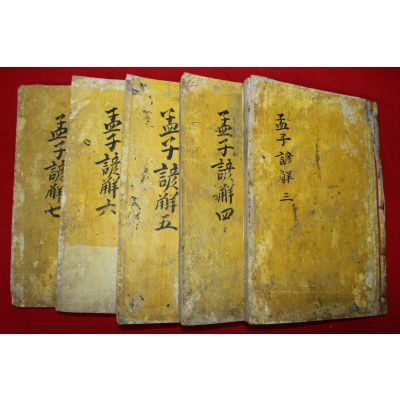 孟子諺解三
孟子諺解四
孟子諺解五
孟子諺解六
孟子諺解七